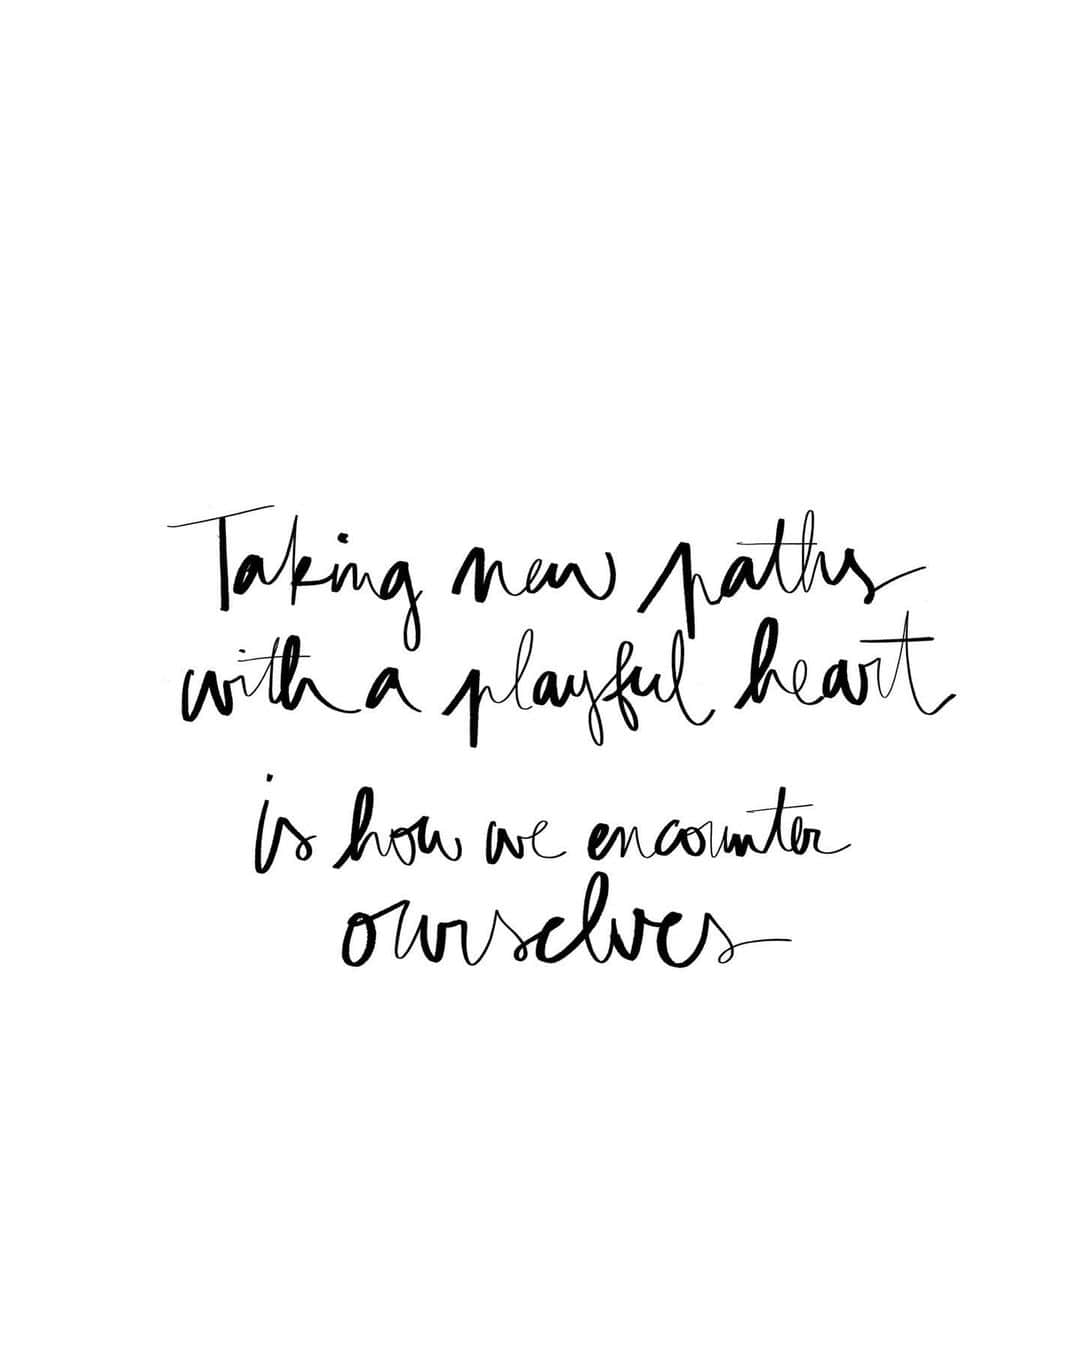 Taking new paths
with a playful heart
is how we encounter
ourselves